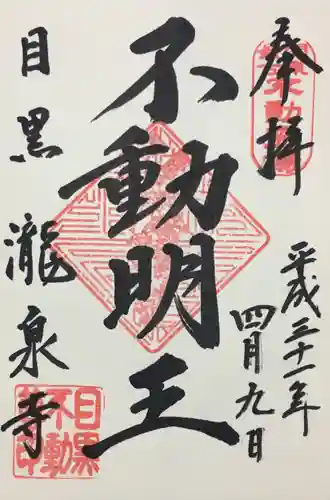 奉拝
平成三十一年
四月九日
不動明王
目黒
瀧泉寺
目黒
不動